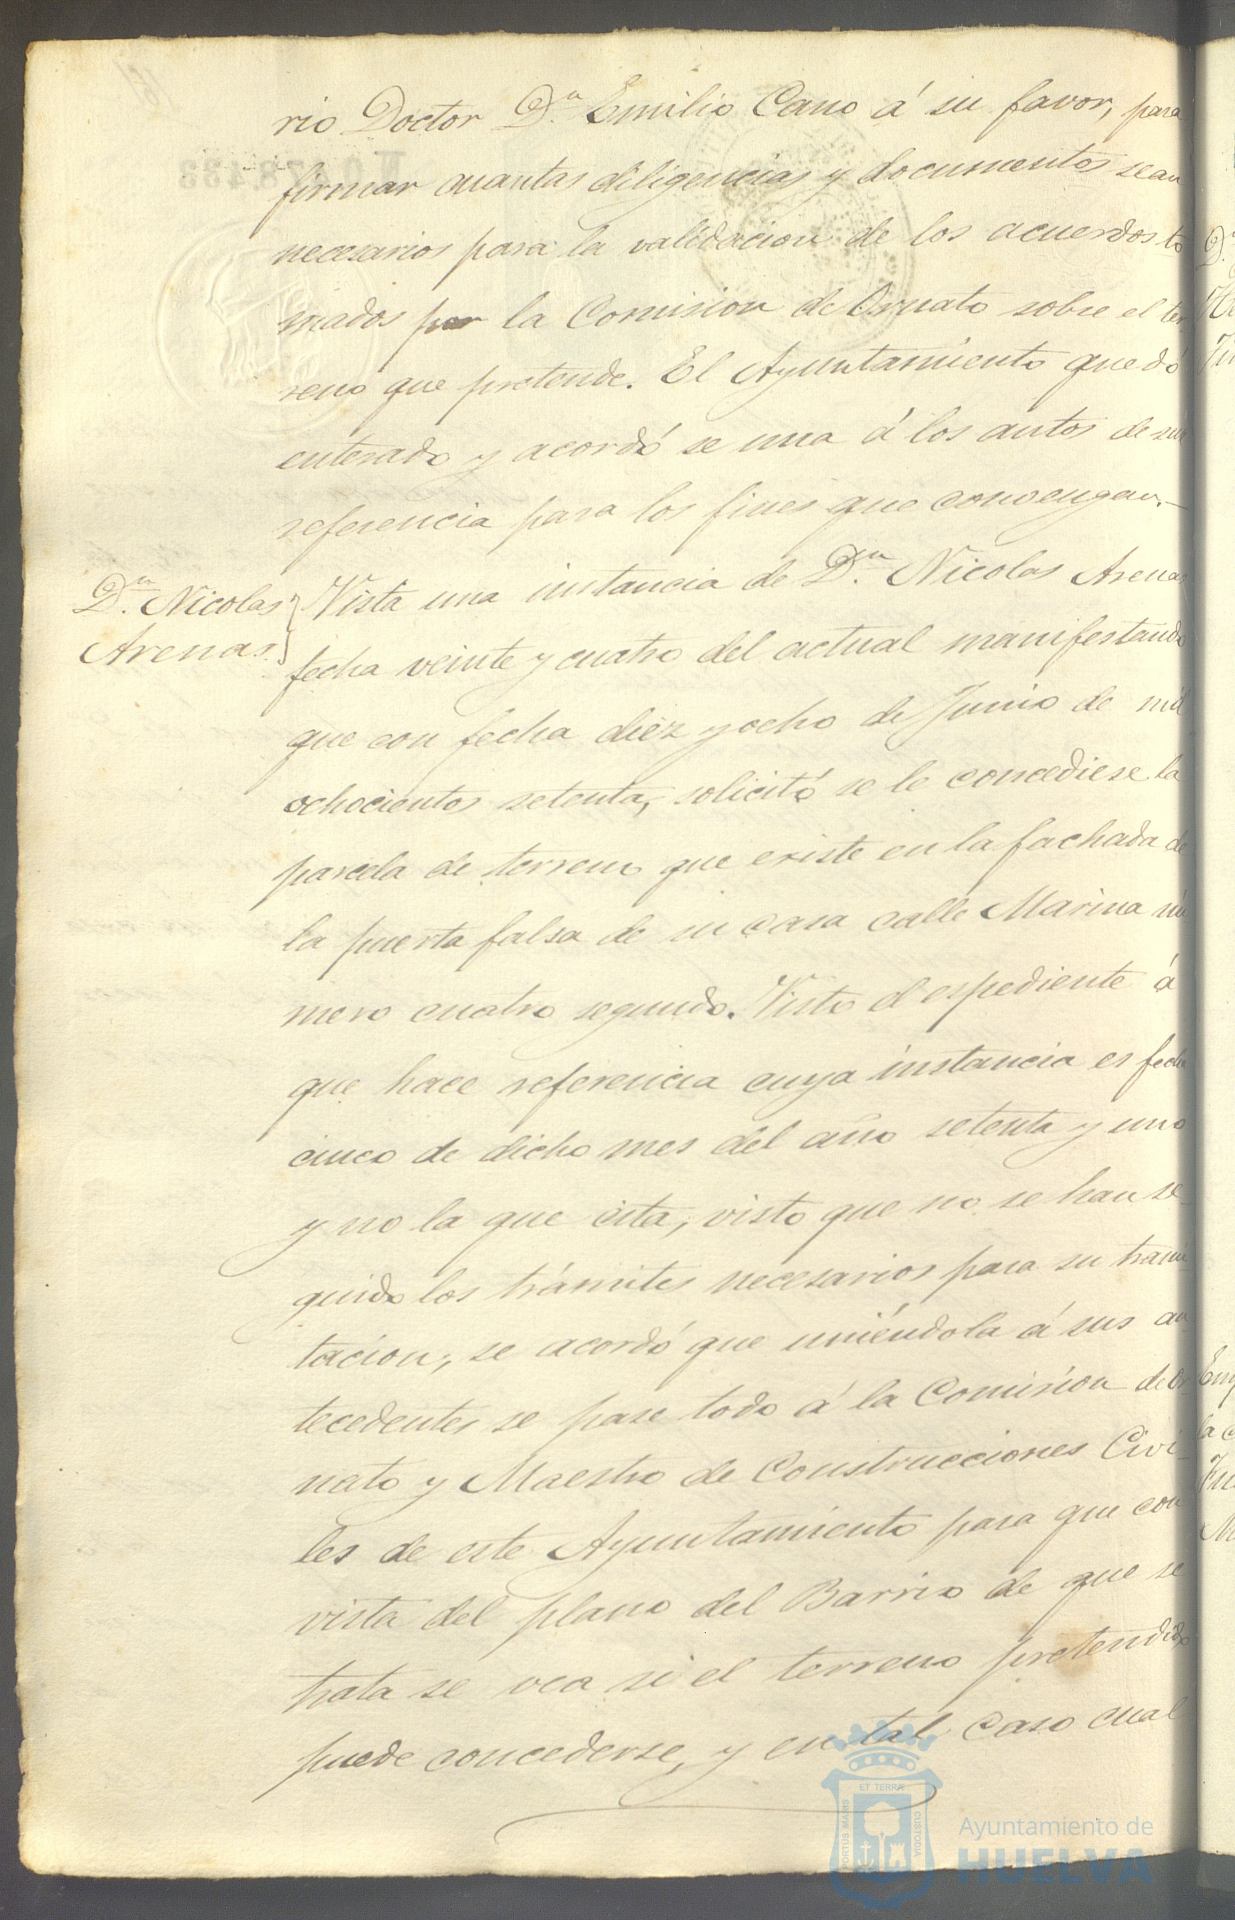 rio Doctor D.n Emilio Cano á su favor, para
firmar cuantas diligencias y documentos sean
necesarios para la validacion de los acuerdos to
mados por la Comision de Ornato sobre el ter
reno que pretende. El Ayuntamiento quedó
enterado y acordó se una á los autos de su
referencia para los fines que convengan.—
D.n Nicolas
Arenas.
Vista una instancia de D.n Nicolas Arenas
fecha veinte y cuatro del actual manifestando
que con fecha diez y ocho de Junio de mil
ochocientos setenta, solicitó se le concediese la
parcela de terreno que existe en la fachada de
la puerta falsa de su casa calle Marina nú
mero cuatro segundo. Visto el espediente á
que hace referencia cuya instancia es fecha
cinco de dicho mes del año setenta y uno
y no la que cita, visto que no se han se
guido los trámites necesarios para su trami
tacion, se acordó que uniéndola á sus an
tecedentes se pase todo á la Comision de Or
nato y Maestro de Construcciones Civi-
les de este Ayuntamiento para que con
vista del plano del Barrio de que se
trata se vea si el terreno pretendido
puede concederse, y en tal caso cual
ET TERRÆ
PORTUS MARIS
CUSTODIA
Ayuntamiento de
HUELVA